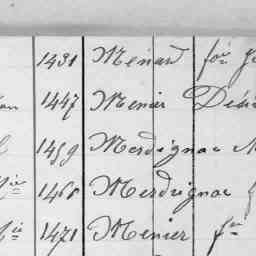 1431 Ménard fois
1447 Menier Dési
1459 Merdrignac M
Nie 1468 Merdrignac
Nie 1471 Menier fse